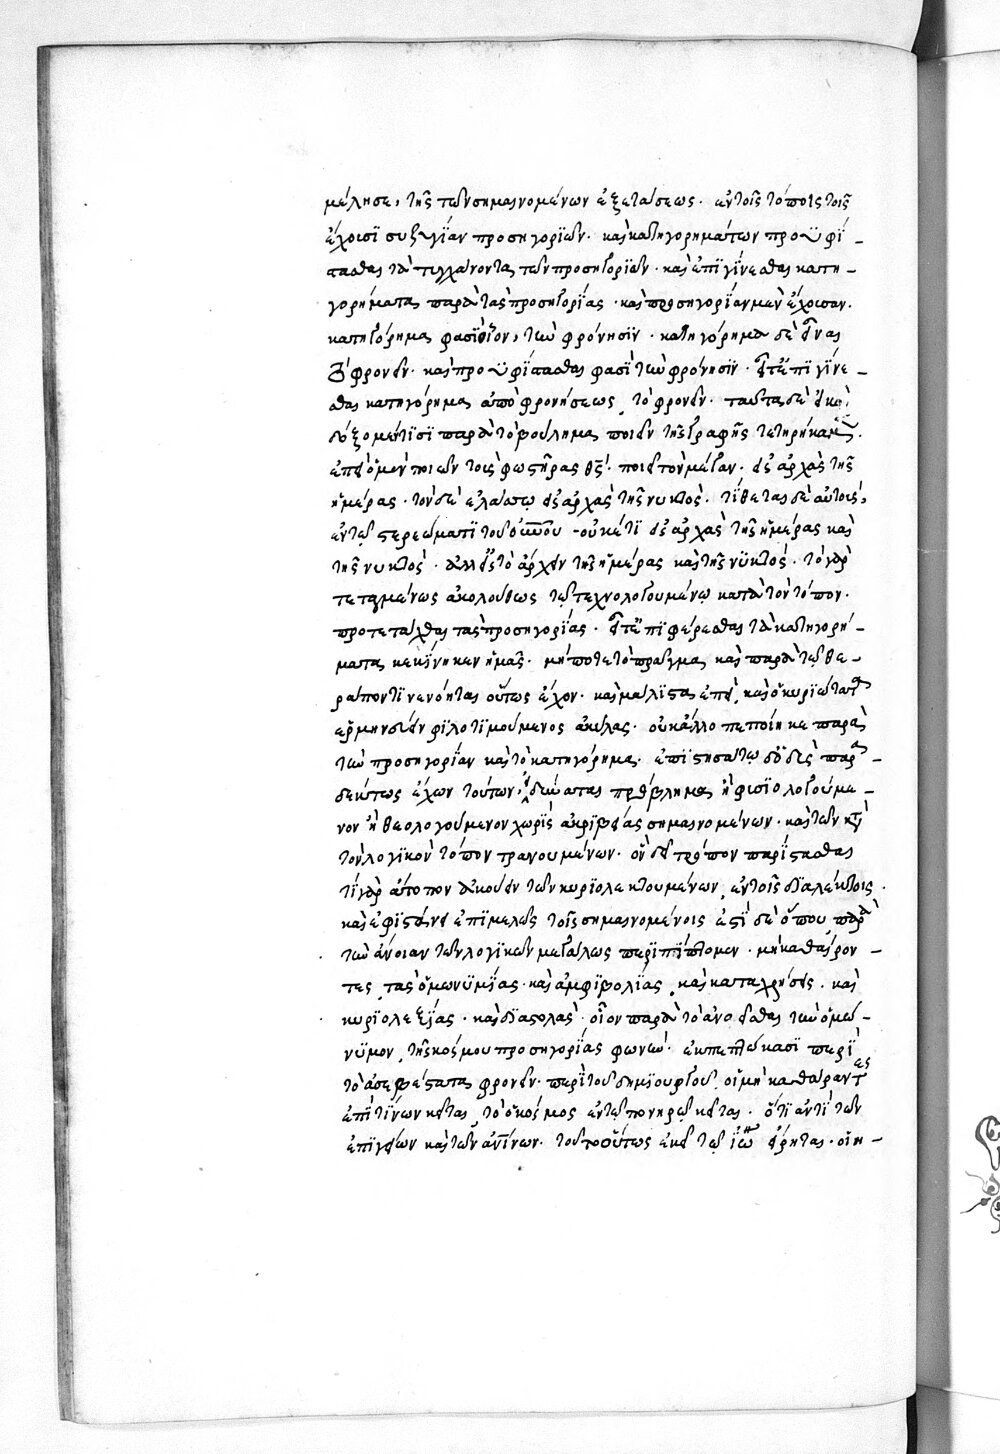 μέλησε, τῆς τῶν σημαινομένων ἐξετάσεως. ἐν τοῖς τόποις τοῖς
ἔχουσι συζυγίαν προσηγοριῶν. καὶ κατηγορημάτων προϋφί-
στασθαι τὰ τυγχάνοντα τῶν προσηγοριῶν. καὶ ἐπιγίνεσθαι κατη-
γορήματα παρὰ τὰς προσηγορίας. καὶ προσηγορίαν μὲν ἔχουσαν
κατηγόρημα φασὶ οἷον, τὴν φρόνησιν. κατηγόρημα δὲ εἶναι
τὸ φρονεῖν. καὶ προϋφίστασθαι φασὶ τὴν φρόνησιν. εἶτ' ἐπιγίνε-
σθαι κατηγόρημα ἀπὸ φρονήσεως, τὸ φρονεῖν. ταῦτα δὲ εἰ καὶ
δόξομεν τισὶ παρὰ τὸ βούλημα ποιεῖν τῆς γραφῆς τετηρήκαμεν.
ἐπεὶ ὁ μὲν ποιῶν τοὺς φωστῆρας θς. ποιεῖ τὸν μέγαν. εἰς ἀρχὰς τῆς
ἡμέρας. τὸν δὲ ἐλάσσω εἰς ἀρχὰς τῆς νυκτός. τίθεται δὲ αὐτοὺς,
ἐν τῷ στερεώματι τοῦ οὐνοῦ. οὐκέτι εἰς ἀρχὰς τῆς ἡμέρας καὶ
τῆς νυκτός. ἀλλ' εἰς τὸ ἄρχειν τῆς ἡμέρας καὶ τῆς νυκτός. τὸ γὰρ
τεταγμένως ἀκολούθως τῷ τεχνολογουμένῳ κατὰ τὸν τόπον.
προτετάχθαι τὰς προσηγορίας. εἶτ' ἐπιφέρεσθαι τὰ κατηγορή-
ματα κεκίνηκεν ἡμᾶς. μήποτε τὸ πρᾶγμα καὶ παρὰ τῷ θε-
ράποντι νενόηται οὕτως ἔχον. καὶ μάλιστα ἐπεὶ, καὶ ὁ κυριώτατα
ἑρμηνεύειν φιλοτιμούμενος ἀκύλας. οὐκ ἄλλο πεποίηκε παρὰ
τὴν προσηγορίαν καὶ τὸ κατηγόρημα. ἐπιστησάτω
ἔχων τούτων, πρόβλημα ἢ φυσιολογούμε-
νον ἢ θεολογούμενον χωρὶς ἀκριβείας σημαινομένων. καὶ τῶν κατὰ
τὸν λογικὸν τόπον τρανουμένων. ὃν δεῖ τρόπον παρίστασθαι
τί γὰρ ἄτοπον ἀκούειν τῶν κυριολεκτουμένων, ἐν τοῖς διαλέκτοις.
καὶ ἐφιστάνειν ἐπιμελῶς τοῖς σημαινομένοις ἔστι δὲ ὅπου, παρὰ
τὴν ἄνοιαν τῶν λογικῶν μεγάλως περιπίπτομεν. μὴ καθαίρον-
τες, τὰς ὁμωνυμίας. καὶ ἀμφιβολίας, καὶ καταχρήσεις. καὶ
κυριολεξίας. καὶ διαστολάς. οἷον παρὰ τὸ ἀγνοεῖσθαι τὴν ὁμώ-
νυμον, τῆς κόσμου προσηγορίας φωνήν. ἐκπεπτώκασι περὶ
τὸ ἀσεβέστατα φρονεῖν. περὶ τοῦ δημιουργοῦ, οἱ μὴ καθάραντες
ἐπὶ τίνων κεῖται, τὸ ὁ κόσμος ἐν τῷ πονηρῷ κεῖται. ὅτι ἀντὶ τῶν
ἐπιγείων καὶ τῶν ἀνίνων. τοῦτο οὕτως ἐκεῖ τῷ ἰωη εἴρηται. οἰη-